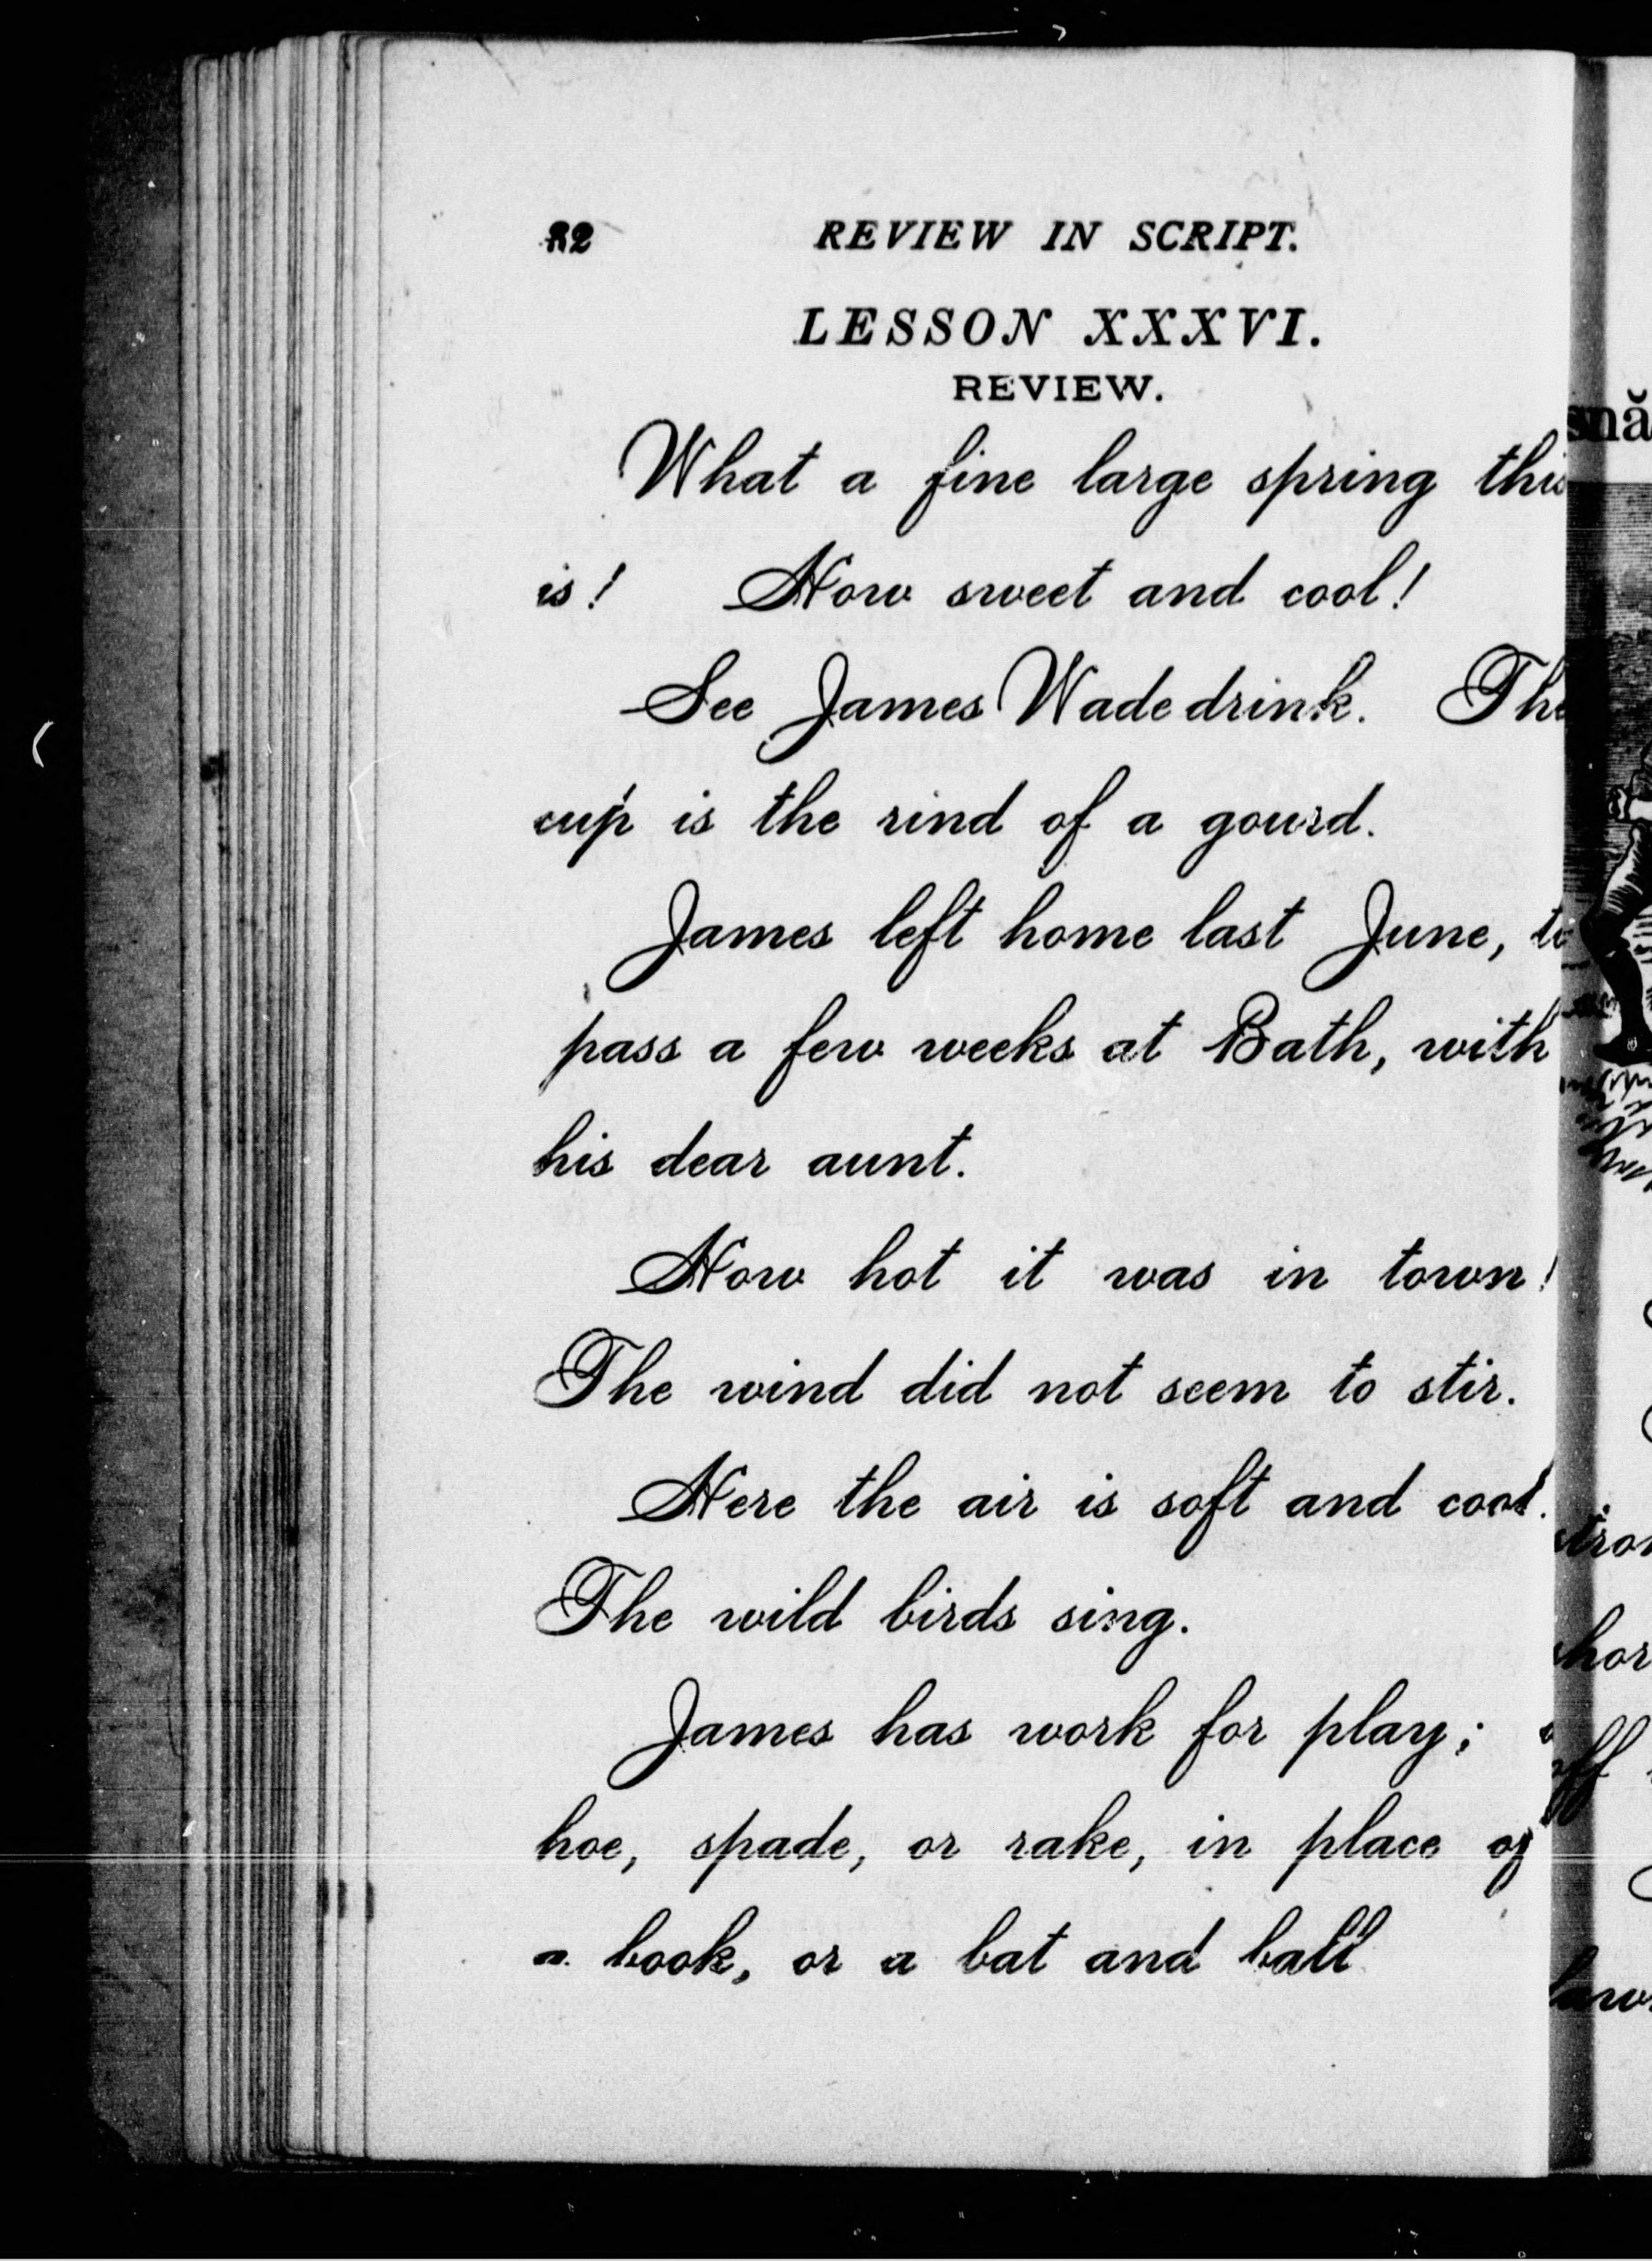 82 REVIEW IN SCRIPT.
LESSON XXXVI.
REVIEW.
What a fine large spring this
is! How sweet and cool!
See James Wade drink. The
cup is the rind of a gourd.
James left home last June, to
pass a few weeks at Bath, with
his dear aunt.
How hot it was in town!
The wind did not seem to stir.
Here the air is soft and cool.
The wild birds sing.
James has work for play;
hoe, spade, or rake, in place of
a book, or a bat and ball